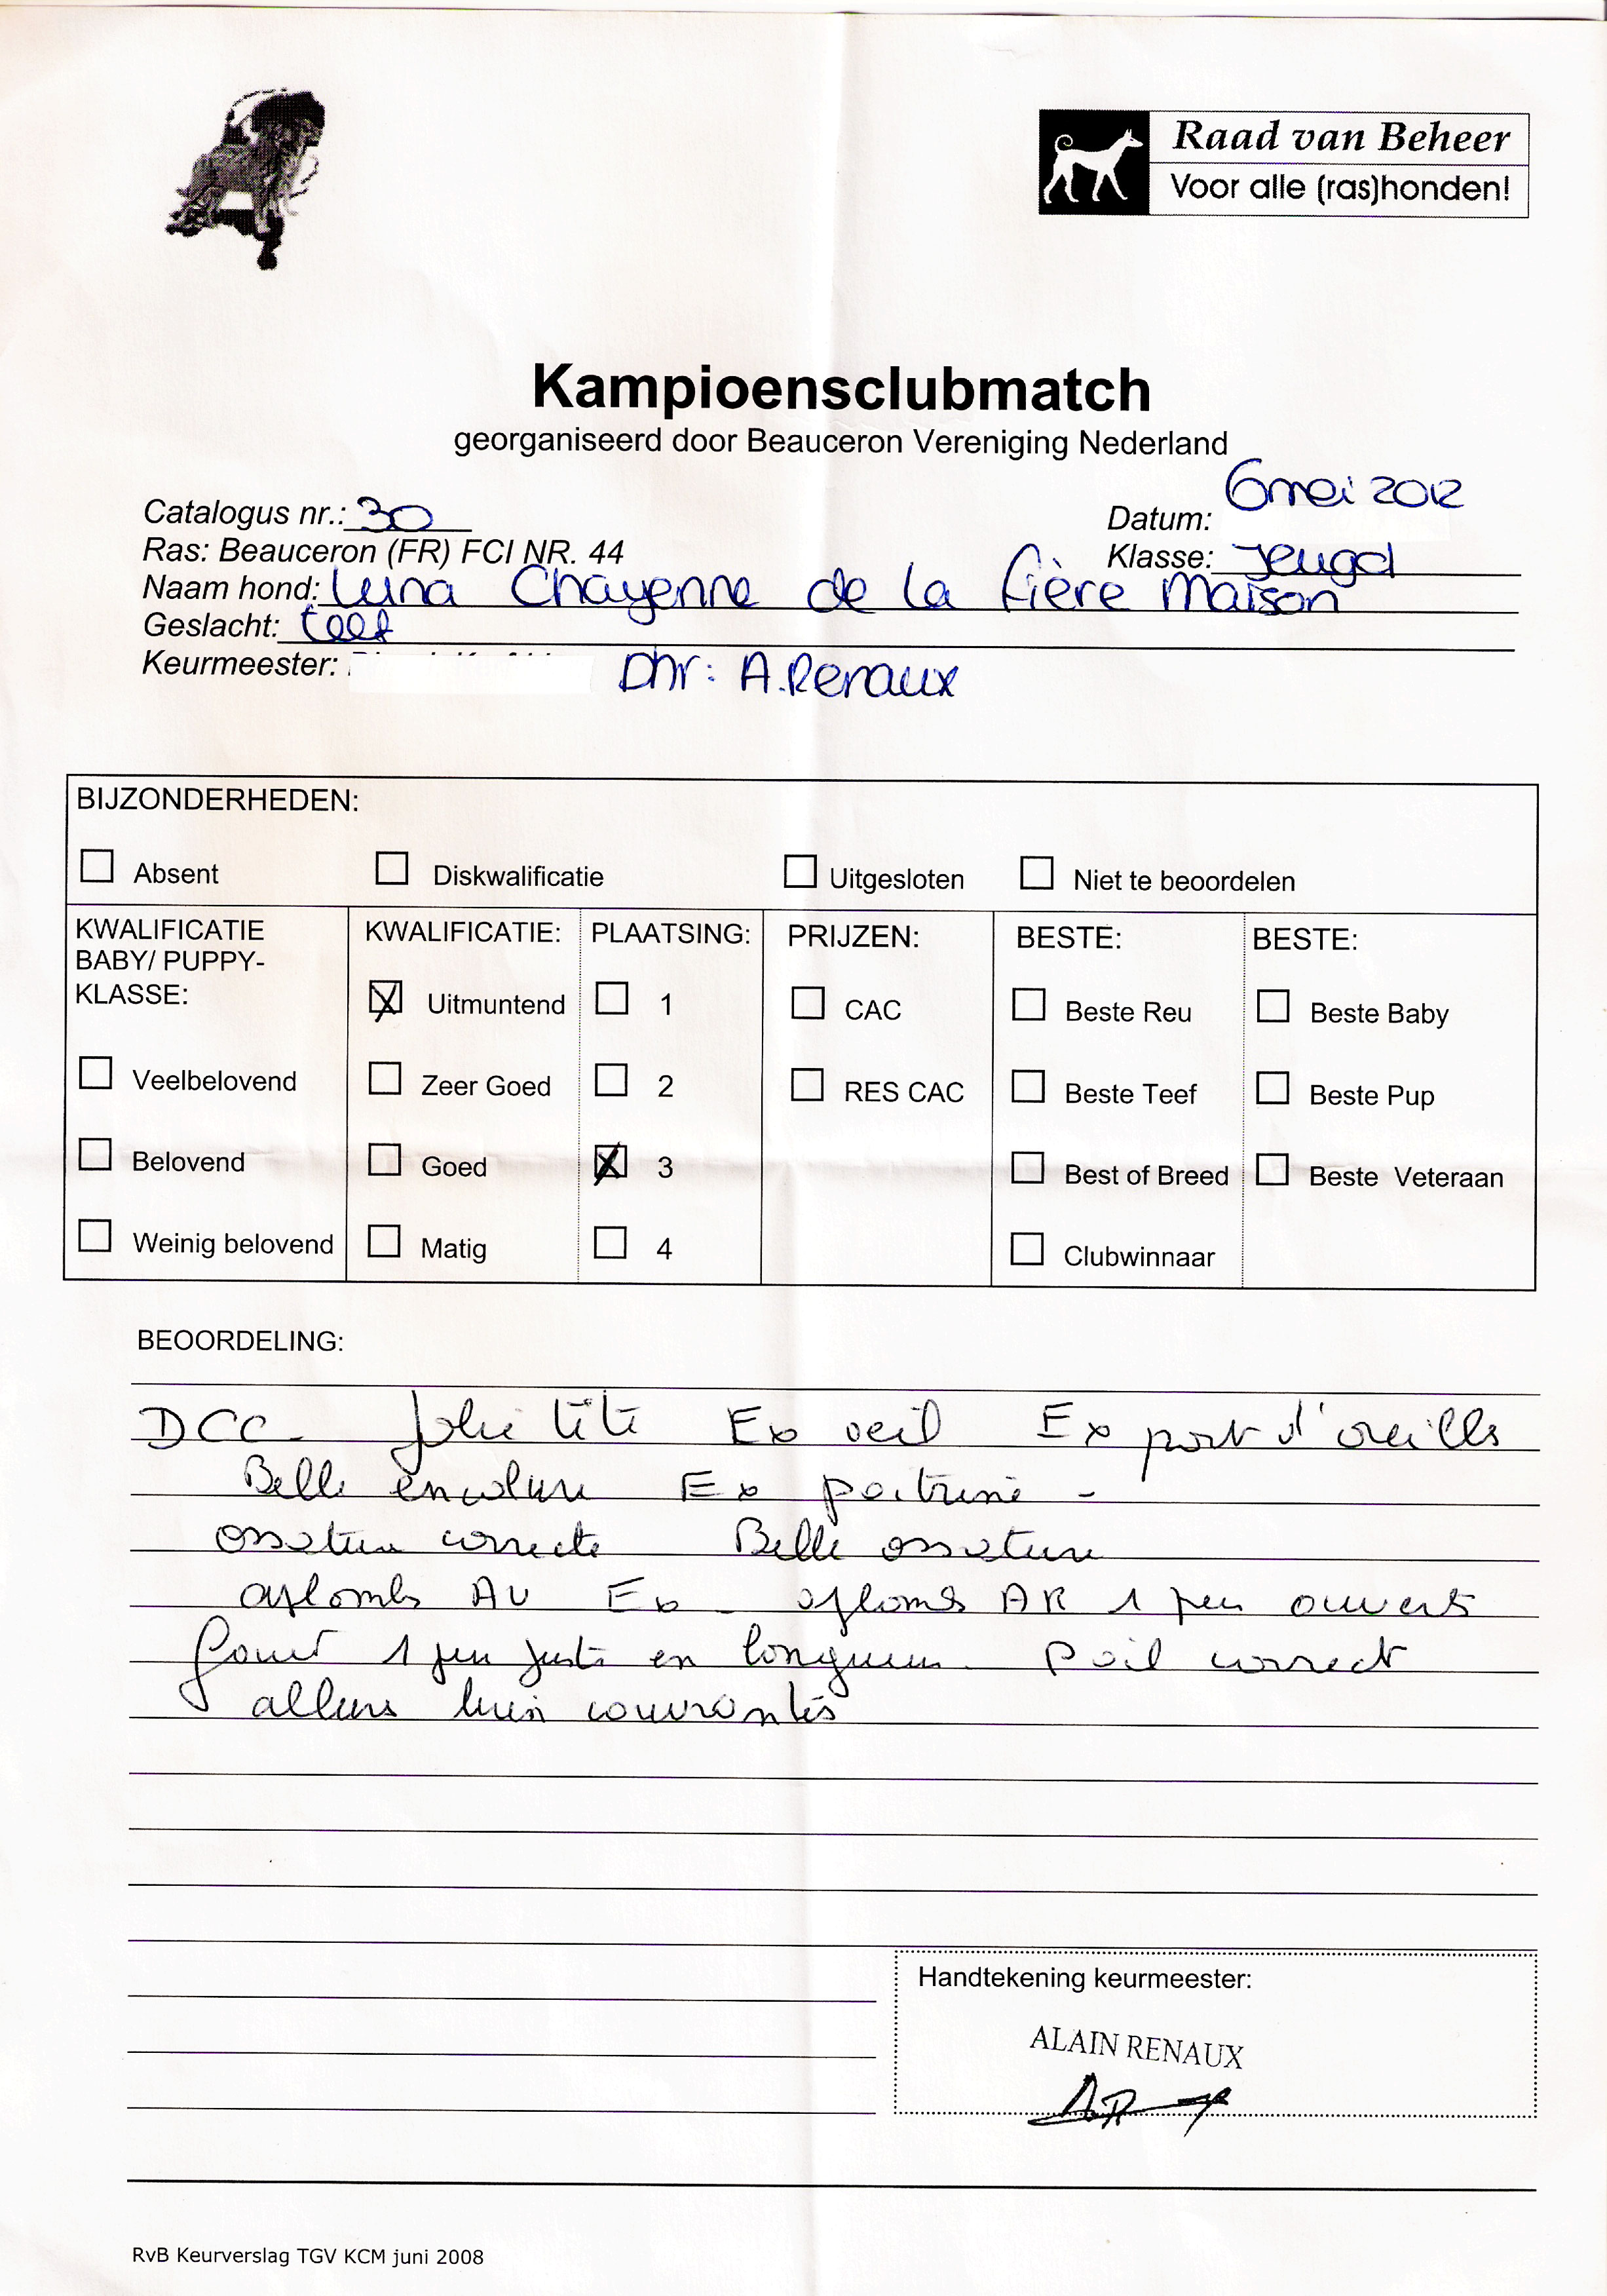 Raad van Beheer
Voor alle (ras)honden!
Kampioensclubmatch
georganiseerd door Beauceron Vereniging Nederland
Catalogus nr.: 30
Datum: 6 mei 2012
Ras: Beauceron (FR) FCI NR. 44
Klasse: Jeugd
Naam hond: Luna Chayenne de la Fière Maison
Geslacht: teef
Keurmeester: Dhr: A. Renaux
BIJZONDERHEDEN:
Absent Diskwalificatie Uitgesloten Niet te beoordelen
KWALIFICATIE BABY/ PUPPY-KLASSE:
Veelbelovend
Belovend
Weinig belovend
KWALIFICATIE:
X Uitmuntend
Zeer Goed
Goed
Matig
PLAATSING:
1
2
X 3
4
PRIJZEN:
CAC
RES CAC
BESTE:
Beste Reu
Beste Teef
Best of Breed
Clubwinnaar
BESTE:
Beste Baby
Beste Pup
Beste Veteraan
BEOORDELING:
DCC - Jolie tête Ex oeil Ex port d'oreilles
Belle encolure Ex poitrine -
ossature correcte Belle ossature
aplombs AV Ex - aplombs AR 1 peu ouverts
fouet 1 peu juste en longueur. Poil correct
allures bien couvrantes
Handtekening keurmeester:
ALAIN RENAUX
RvB Keurverslag TGV KCM juni 2008